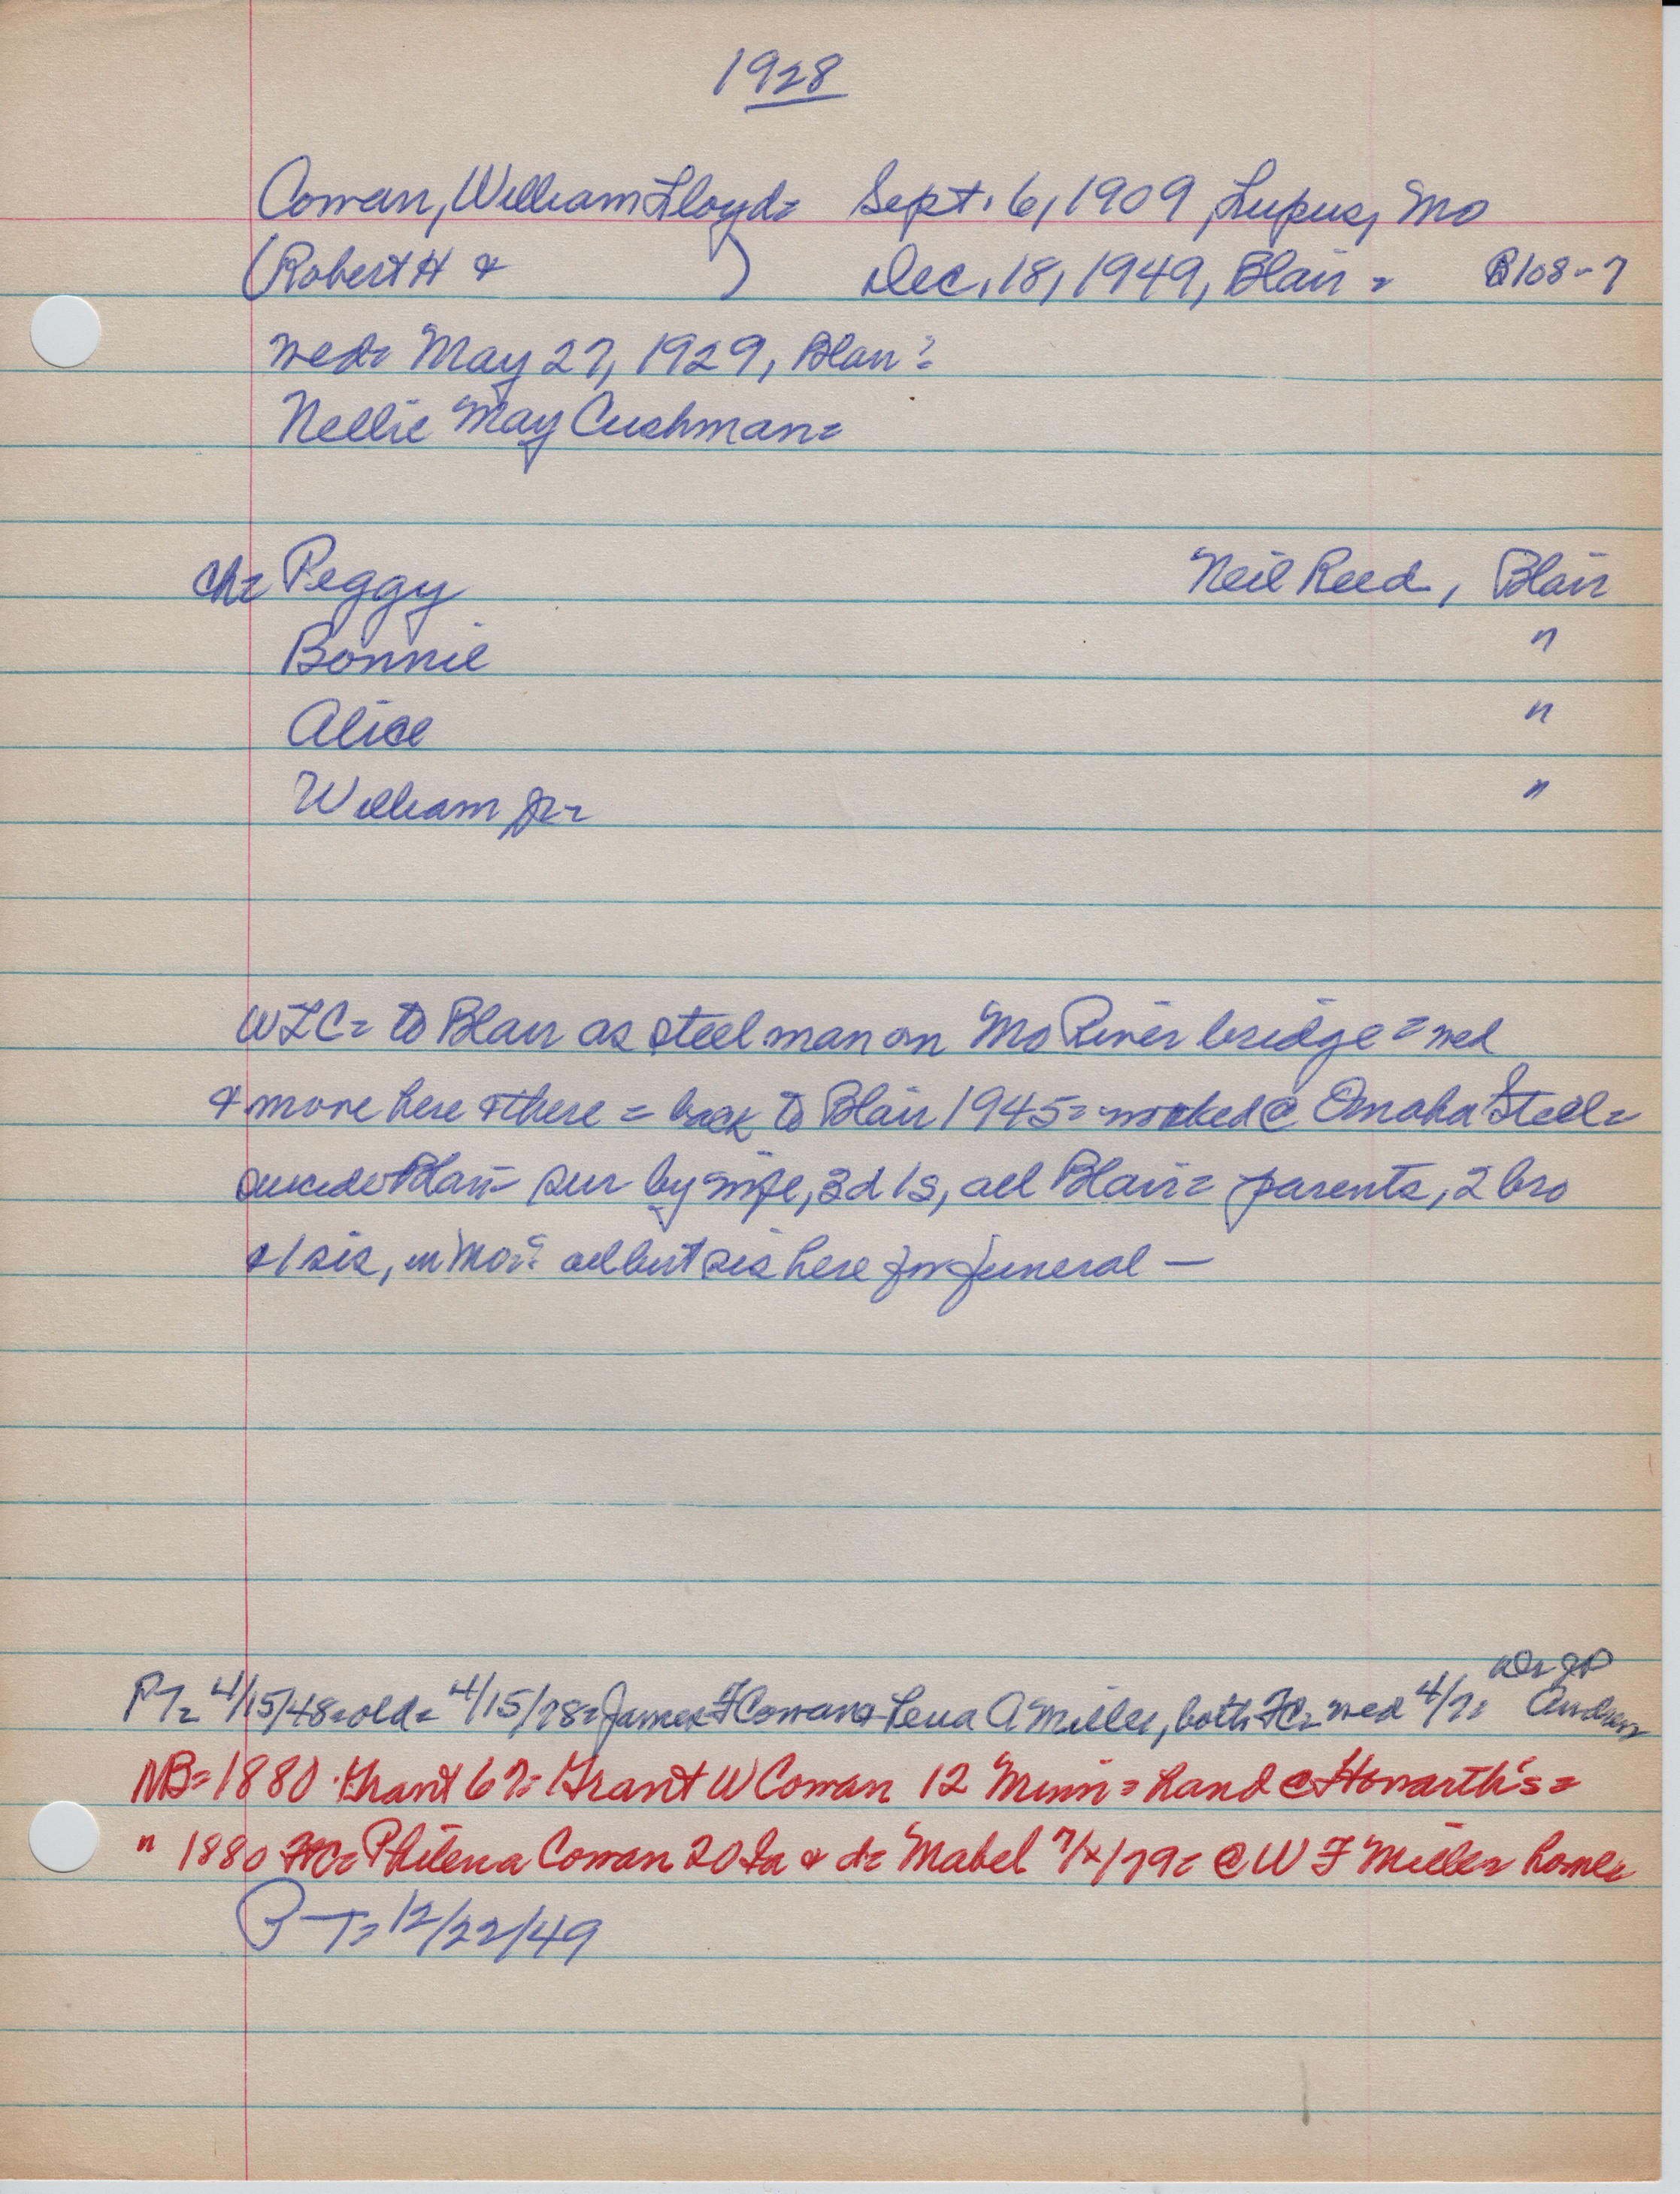 1928
Cowan, William Lloyd= Sept. 6, 1909, Lupus, Mo
(Robert H & ) Dec. 18, 1949, Blair = B108-7
wed= May 27, 1929, Blair=
Nellie May Cushman=
Ch= Peggy Neil Reed, Blair
Bonnie "
Alice "
William Jr= "
WLC= to Blair as steel man on Mo River bridge = wed
& move here & there = back to Blair 1945= worked @ Omaha Steel=
Blair= sur by wife, 3d 1s, all Blair= parents, 2 bro
& 1 sis, in Mo= all but sis here for funeral —
Dr JP
PT= 4/15/48=old= 4/15/78=James F Cowan & Lena A Miller, both FC= wed 4/7=
NB=1880 Grant 67= Grant W Cowan 12 Minn= hand @ Howarth's=
" 1880 FC= Philena Cowan 20 Ia & d= Mabel 7/x/79= @ W F Miller home=
PT= 12/22/49